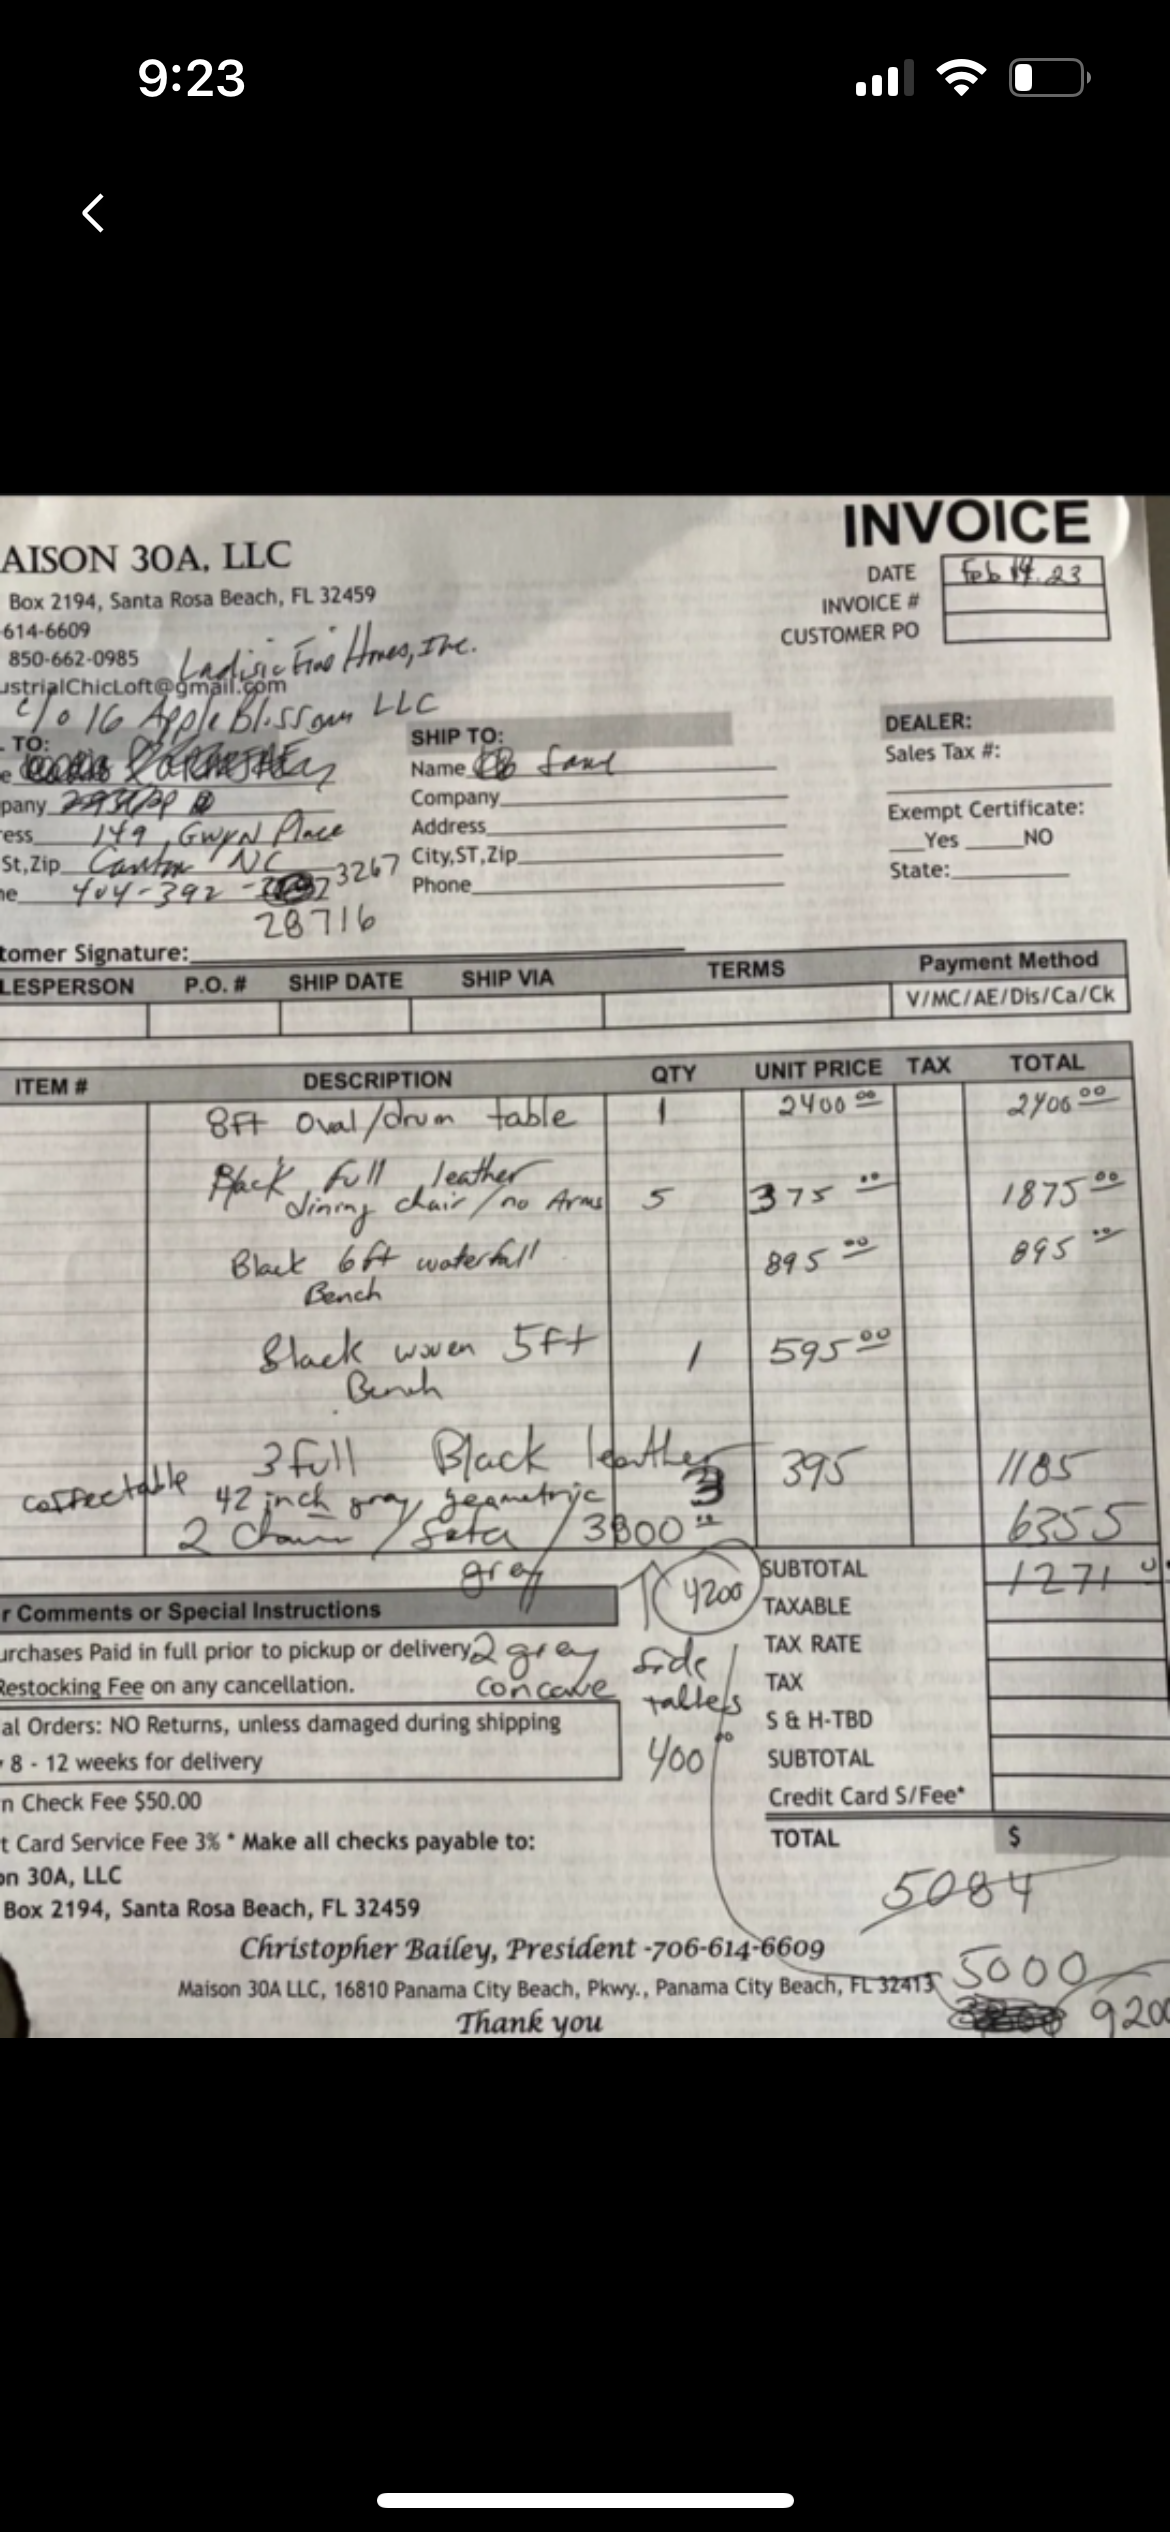 9:23
INVOICE
AISON 30A, LLC
Box 2194, Santa Rosa Beach, FL 32459
-614-6609
850-662-0985
ustrialChicLoft@gmail.com
DATE Feb 14. 23
INVOICE #
CUSTOMER PO
Ladisic Fine Homes, Inc.
c/o 16 Apple Blossom LLC
TO:
SHIP TO:
DEALER:
Name
Sales Tax #:
pany
Company
ress 149 Gwyn Place
Address
Exempt Certificate:
Yes NO
St,Zip Canton NC
City,ST,Zip
State:
ne 404-392- 3267
Phone
28716
tomer Signature:
LESPERSON P.O. # SHIP DATE SHIP VIA TERMS Payment Method
V/MC/AE/Dis/Ca/Ck
ITEM # DESCRIPTION QTY UNIT PRICE TAX TOTAL
8ft Oval/drum table 1 2400 00 2400 00
Black full leather
dining chair/no Arms 5 375 00 1875 00
Black 6ft waterfall 895 00 895 00
Bench
Black woven 5ft 1 595 00
Bench
3 full Black leather 395 1185
42 inch gray geometric 3
2 / / 3800 00 6355
grey
4200
SUBTOTAL 1271
r Comments or Special Instructions
TAXABLE
urchases Paid in full prior to pickup or delivery
2 grey side
TAX RATE
Restocking Fee on any cancellation.
concave tables
TAX
al Orders: NO Returns, unless damaged during shipping
S & H-TBD
8 - 12 weeks for delivery
400 00
SUBTOTAL
n Check Fee $50.00
Credit Card S/Fee*
t Card Service Fee 3% * Make all checks payable to:
TOTAL $
on 30A, LLC
5084
Box 2194, Santa Rosa Beach, FL 32459
Christopher Bailey, President -706-614-6609
5000
Maison 30A LLC, 16810 Panama City Beach, Pkwy., Panama City Beach, FL 32413
9200
Thank you